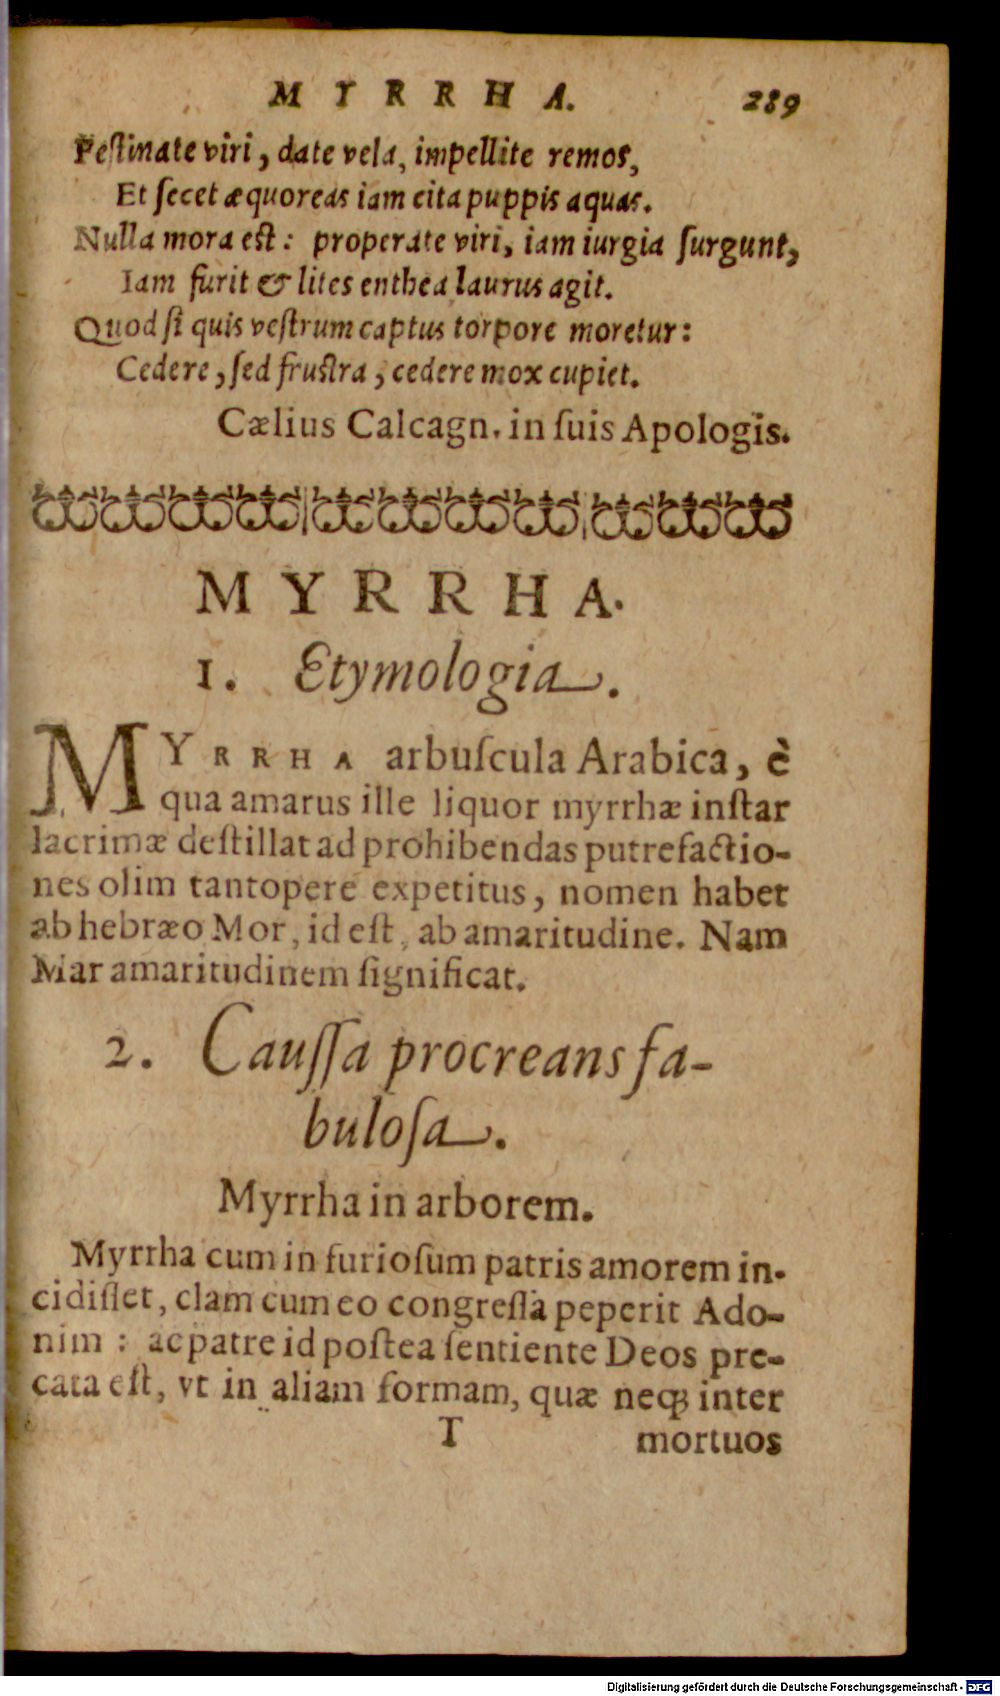 MYRRHA. 289
Festinate viri, date vela, impellite remos,
Et ſecet æquoreas iam cita puppis aquas.
Nulla mora eſt: properate viri, iam iurgia ſurgunt,
Iam furit & lites enthea laurus agit.
Quod ſi quis veſtrum captus torpore moretur:
Cedere, ſed fruſtra, cedere mox cupiet.
Cælius Calcagn. in ſuis Apologis.
MYRRHA.
1. Etymologia.
MYRRHA arbuſcula Arabica, è
qua amarus ille liquor myrrhæ inſtar
lacrimæ deſtillat ad prohibendas putrefactio-
nes olim tantopere expetitus, nomen habet
ab hebræo Mor, id eſt, ab amaritudine. Nam
Mar amaritudinem ſignificat.
2. Cauſſa procreans fa-
buloſa.
Myrrha in arborem.
Myrrha cum in furioſum patris amorem in-
cidiſſet, clam cum eo congreſſa peperit Ado-
nim: ac patre id poſtea ſentiente Deos pre-
cata eſt, vt in aliam formam, quæ neq; inter
T mortuos
Digitalisierung gefördert durch die Deutsche Forschungsgemeinschaft - DFG